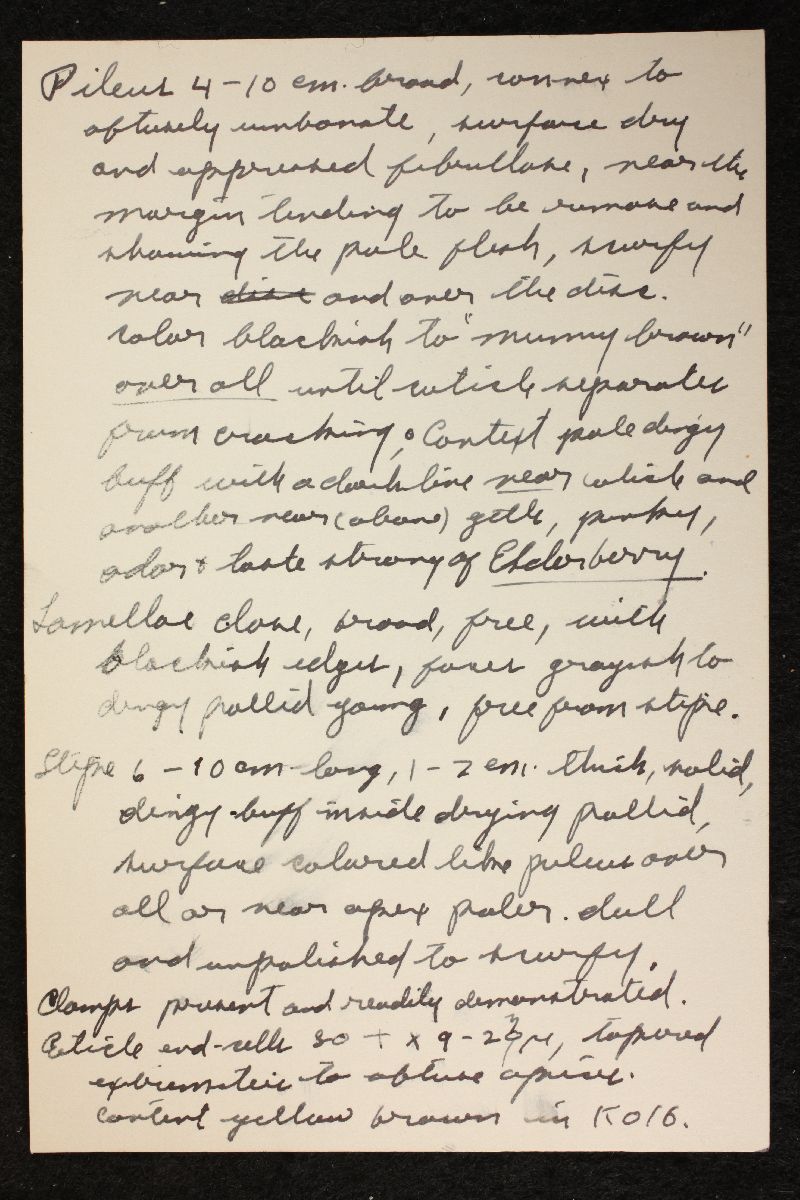 Pileus 4-10 cm. broad, convex to
obtusely umbonate, surface dry
and appressed fibrillose, near the
margin tending to be rimose and
showing the pale flesh, scurfy
near disc and over the disc.
Color blackish to "mummy brown"
over all until cuticle separates
from cracking, Context pale dingy
buff with a dark line near cuticle and
another near (above) gills, punky,
odor & taste strong of Elderberry.
Lamellae close, broad, free, with
blackish edges, faces grayish to
dingy pallid young, free from stipe.
Stipe 6-10 cm long, 1-2 cm. thick, solid,
dingy-buff inside drying pallid,
surface colored like pileus over
all or near apex paler. dull
and unpolished to scurfy.
Clamps present and readily demonstrated.
Cuticle end-cells 80 + x 9-23 µ, tapered
to obtuse apices.
Content yellow brown in KOH.